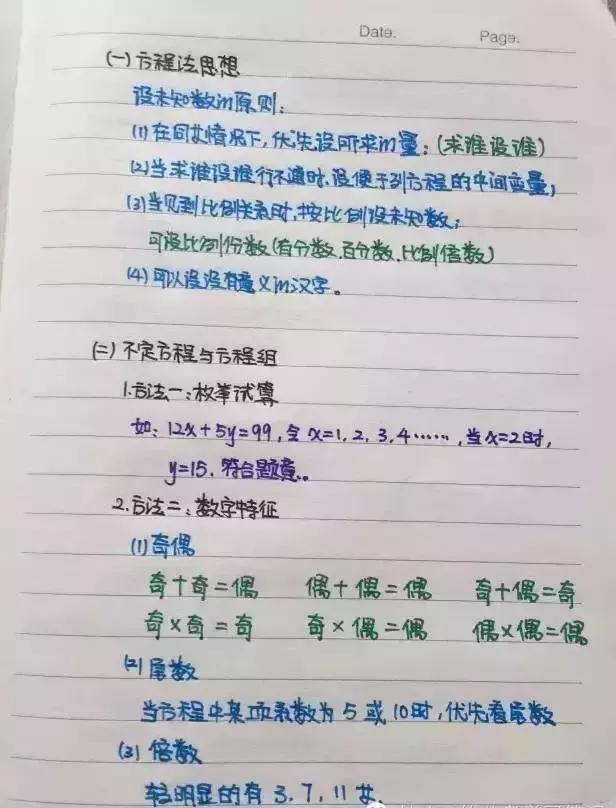 Date.
Page.
(一)方程法思想
设未知数的原则:
(1)在同其情况下,优先设所求的量;(求谁设谁)
(2)当求谁设谁行不通时,设便于列方程的中间变量;
(3)当见到比例关系时,按比例设未知数;
可设比例份数(有分数、百分数、比例倍数)
(4)可以设没有意义的汉字。
(二)不定方程与方程组
1.方法一:枚举试算
如:12x+5y=99,令x=1,2,3,4……,当x=2时,
y=15,符合题意。
2.方法二:数字特征
(1)奇偶
奇+奇=偶 偶+偶=偶 奇+偶=奇
奇×奇=奇 奇×偶=偶 偶×偶=偶
(2)尾数
当方程中某项系数为5或10时,优先看尾数
(3)倍数
较明显的有3、7、11